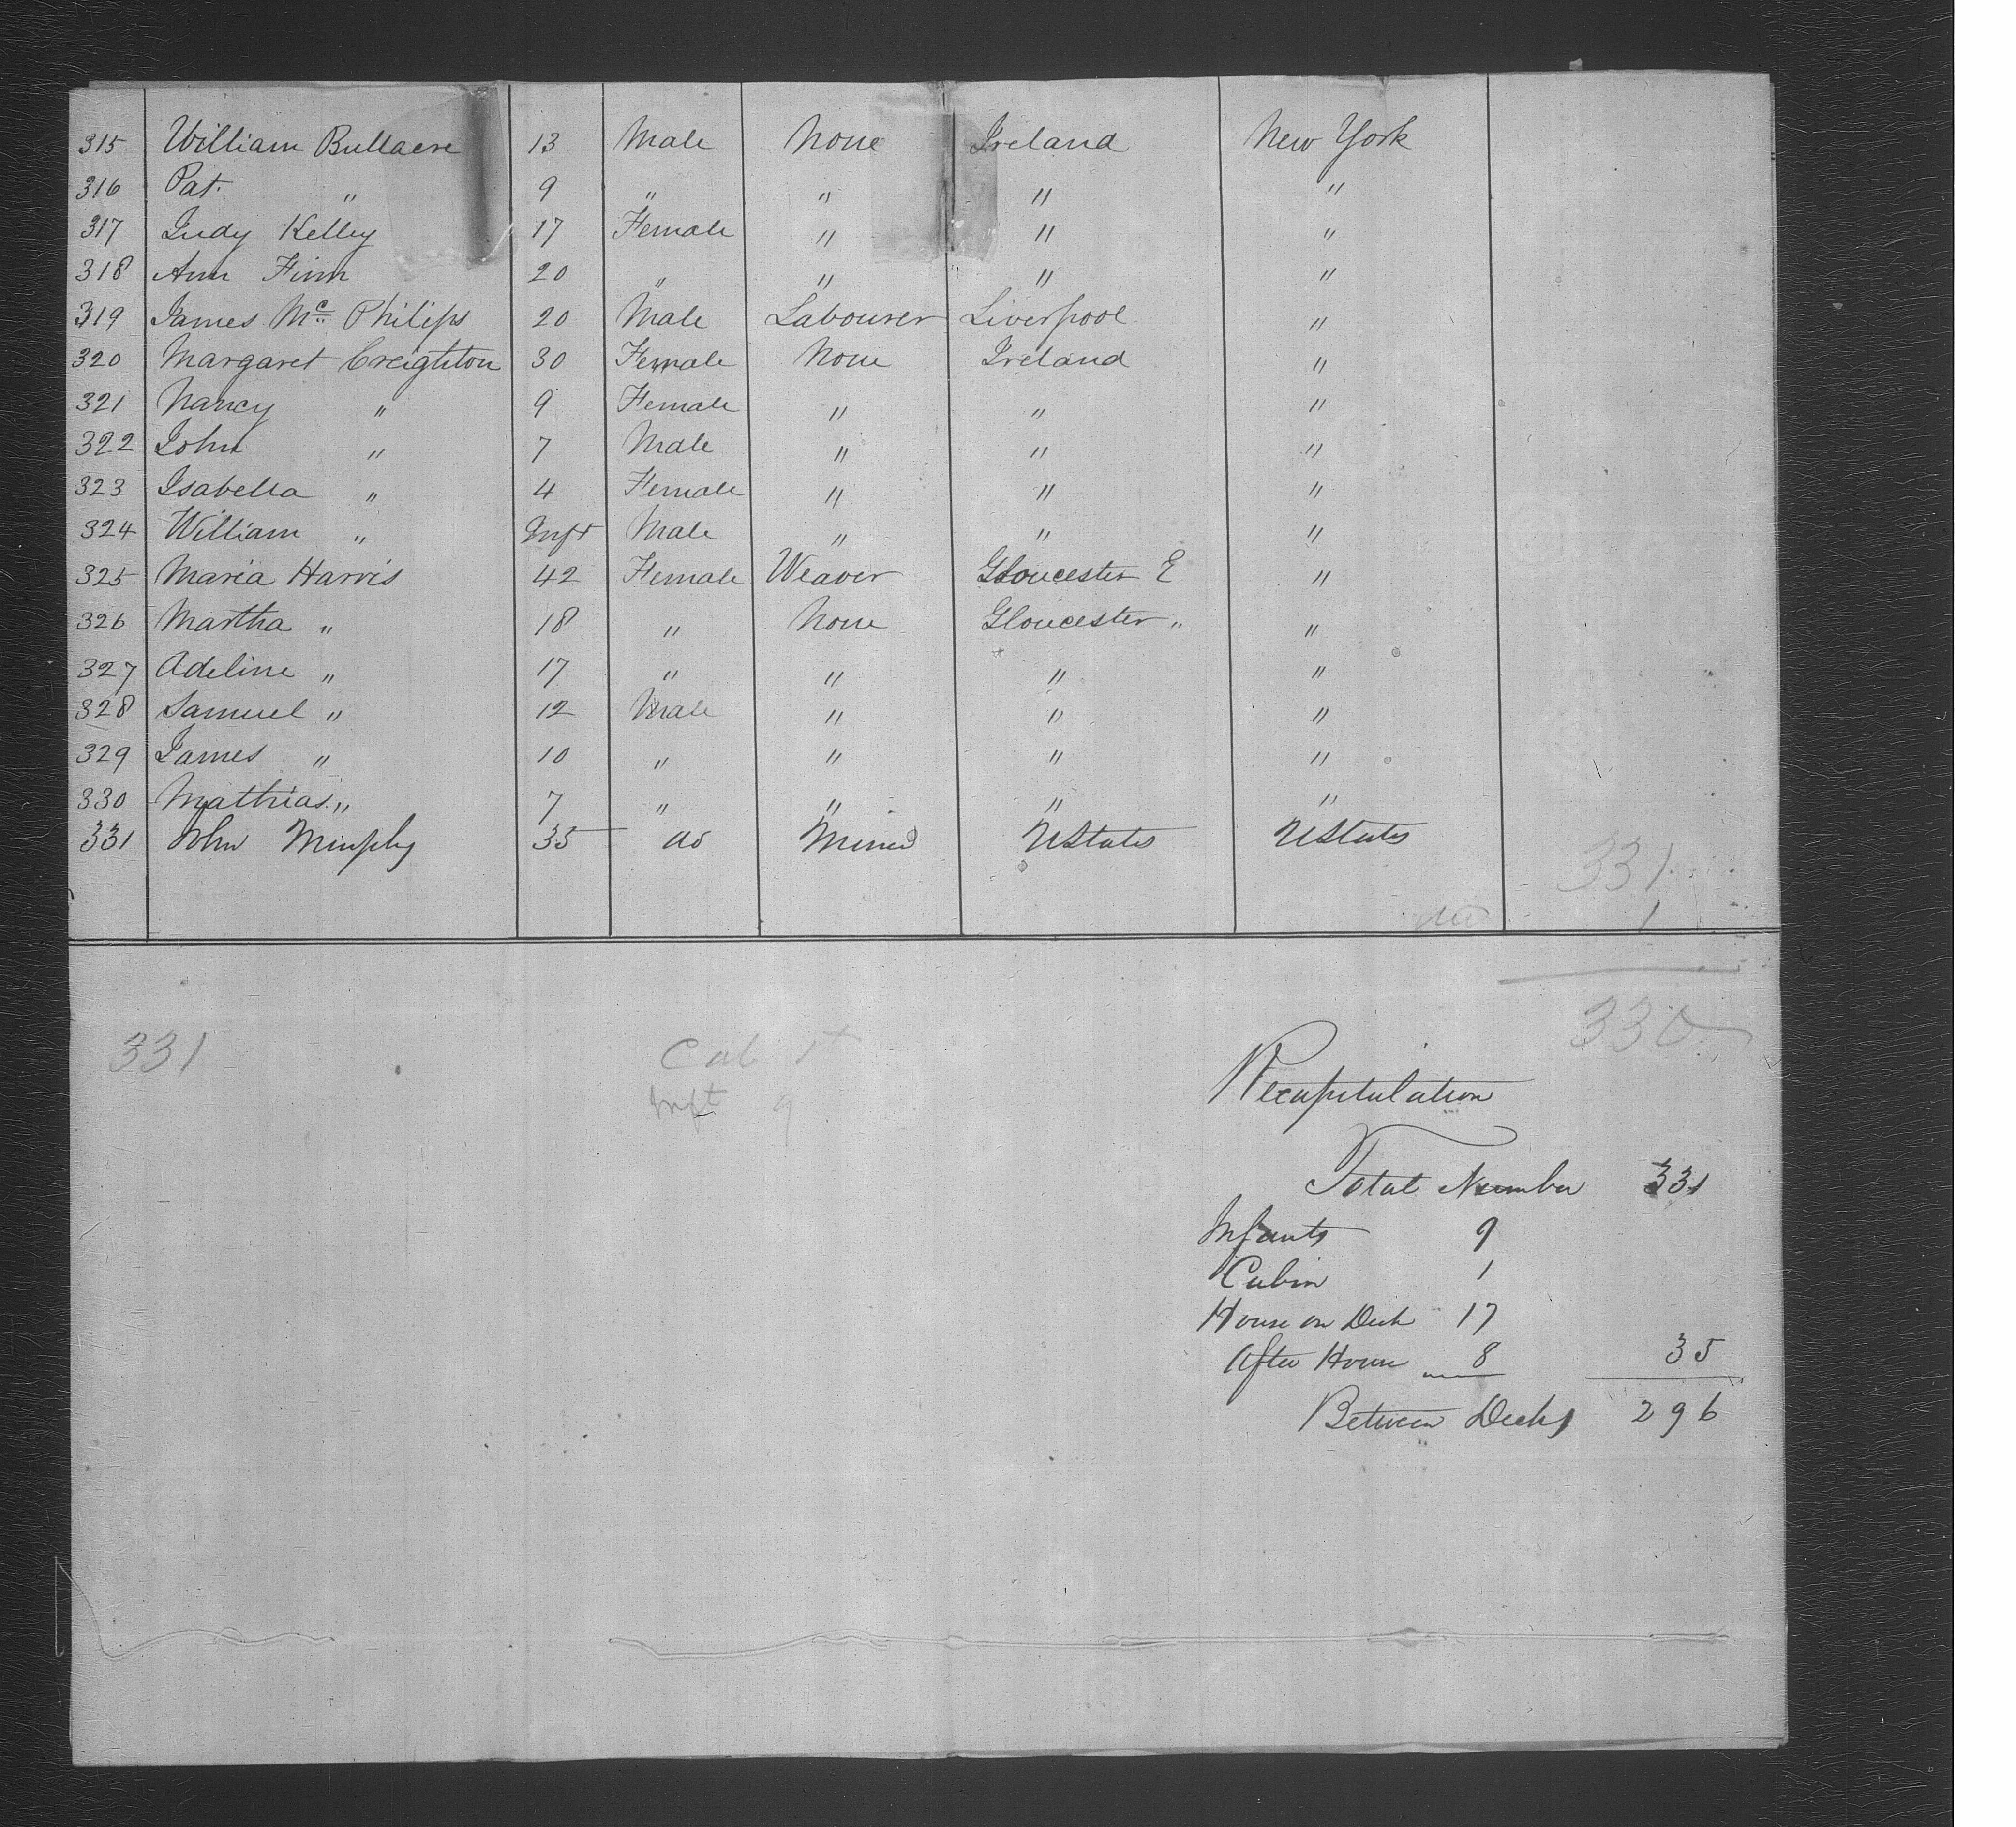 315 William Bullacre 13 Male None Ireland New York
316 Pat. " 9 " " " "
317 Judy Kelley 17 Female " " "
318 Ann Finn 20 " " " "
319 James Mc Philips 20 Male Labourer Liverpool "
320 Margaret Creighton 30 Female None Ireland "
321 Nancy " 9 Female " " "
322 John " 7 Male " " "
323 Isabella " 4 Female " " "
324 William " Inft Male " " "
325 Maria Harris 42 Female Weaver Gloucester E "
326 Martha " 18 " None Gloucester " "
327 Adeline " 17 " " " "
328 Samuel " 12 Male " " "
329 James " 10 " " " "
330 Mathias " 7 " " " "
331 John Murphy 35 do Miner UStates UStates
331
1
330
331 Cab 1
Inft 9
Recapitulation
Total Number 331
Infants 9
Cabin 1
House on Deck 17
After House 8 35
Between Decks 296